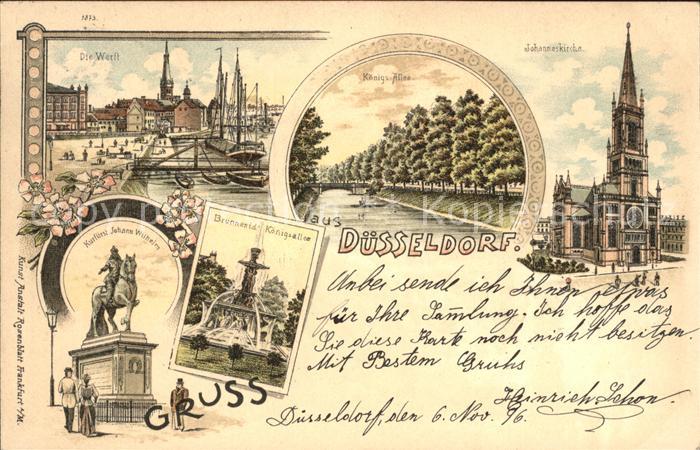 1873.
Die Werft
Königs-Allee
Johanneskirche.
Kurfürst Johann Wilhelm
Brunnen i.d. Königsallee
aus
DÜSSELDORF.
GRUSS
Kunst Anstalt Rosenblatt Frankfurt a/M.
Anbei sende ich Ihnen etwas
für Ihre Samlung. Ich hoffe das
Sie diese Karte noch nicht besitzen.
Mit Bestem Gruhs
Heinrich Schon.
Düsseldorf, den 6. Nov. 96.